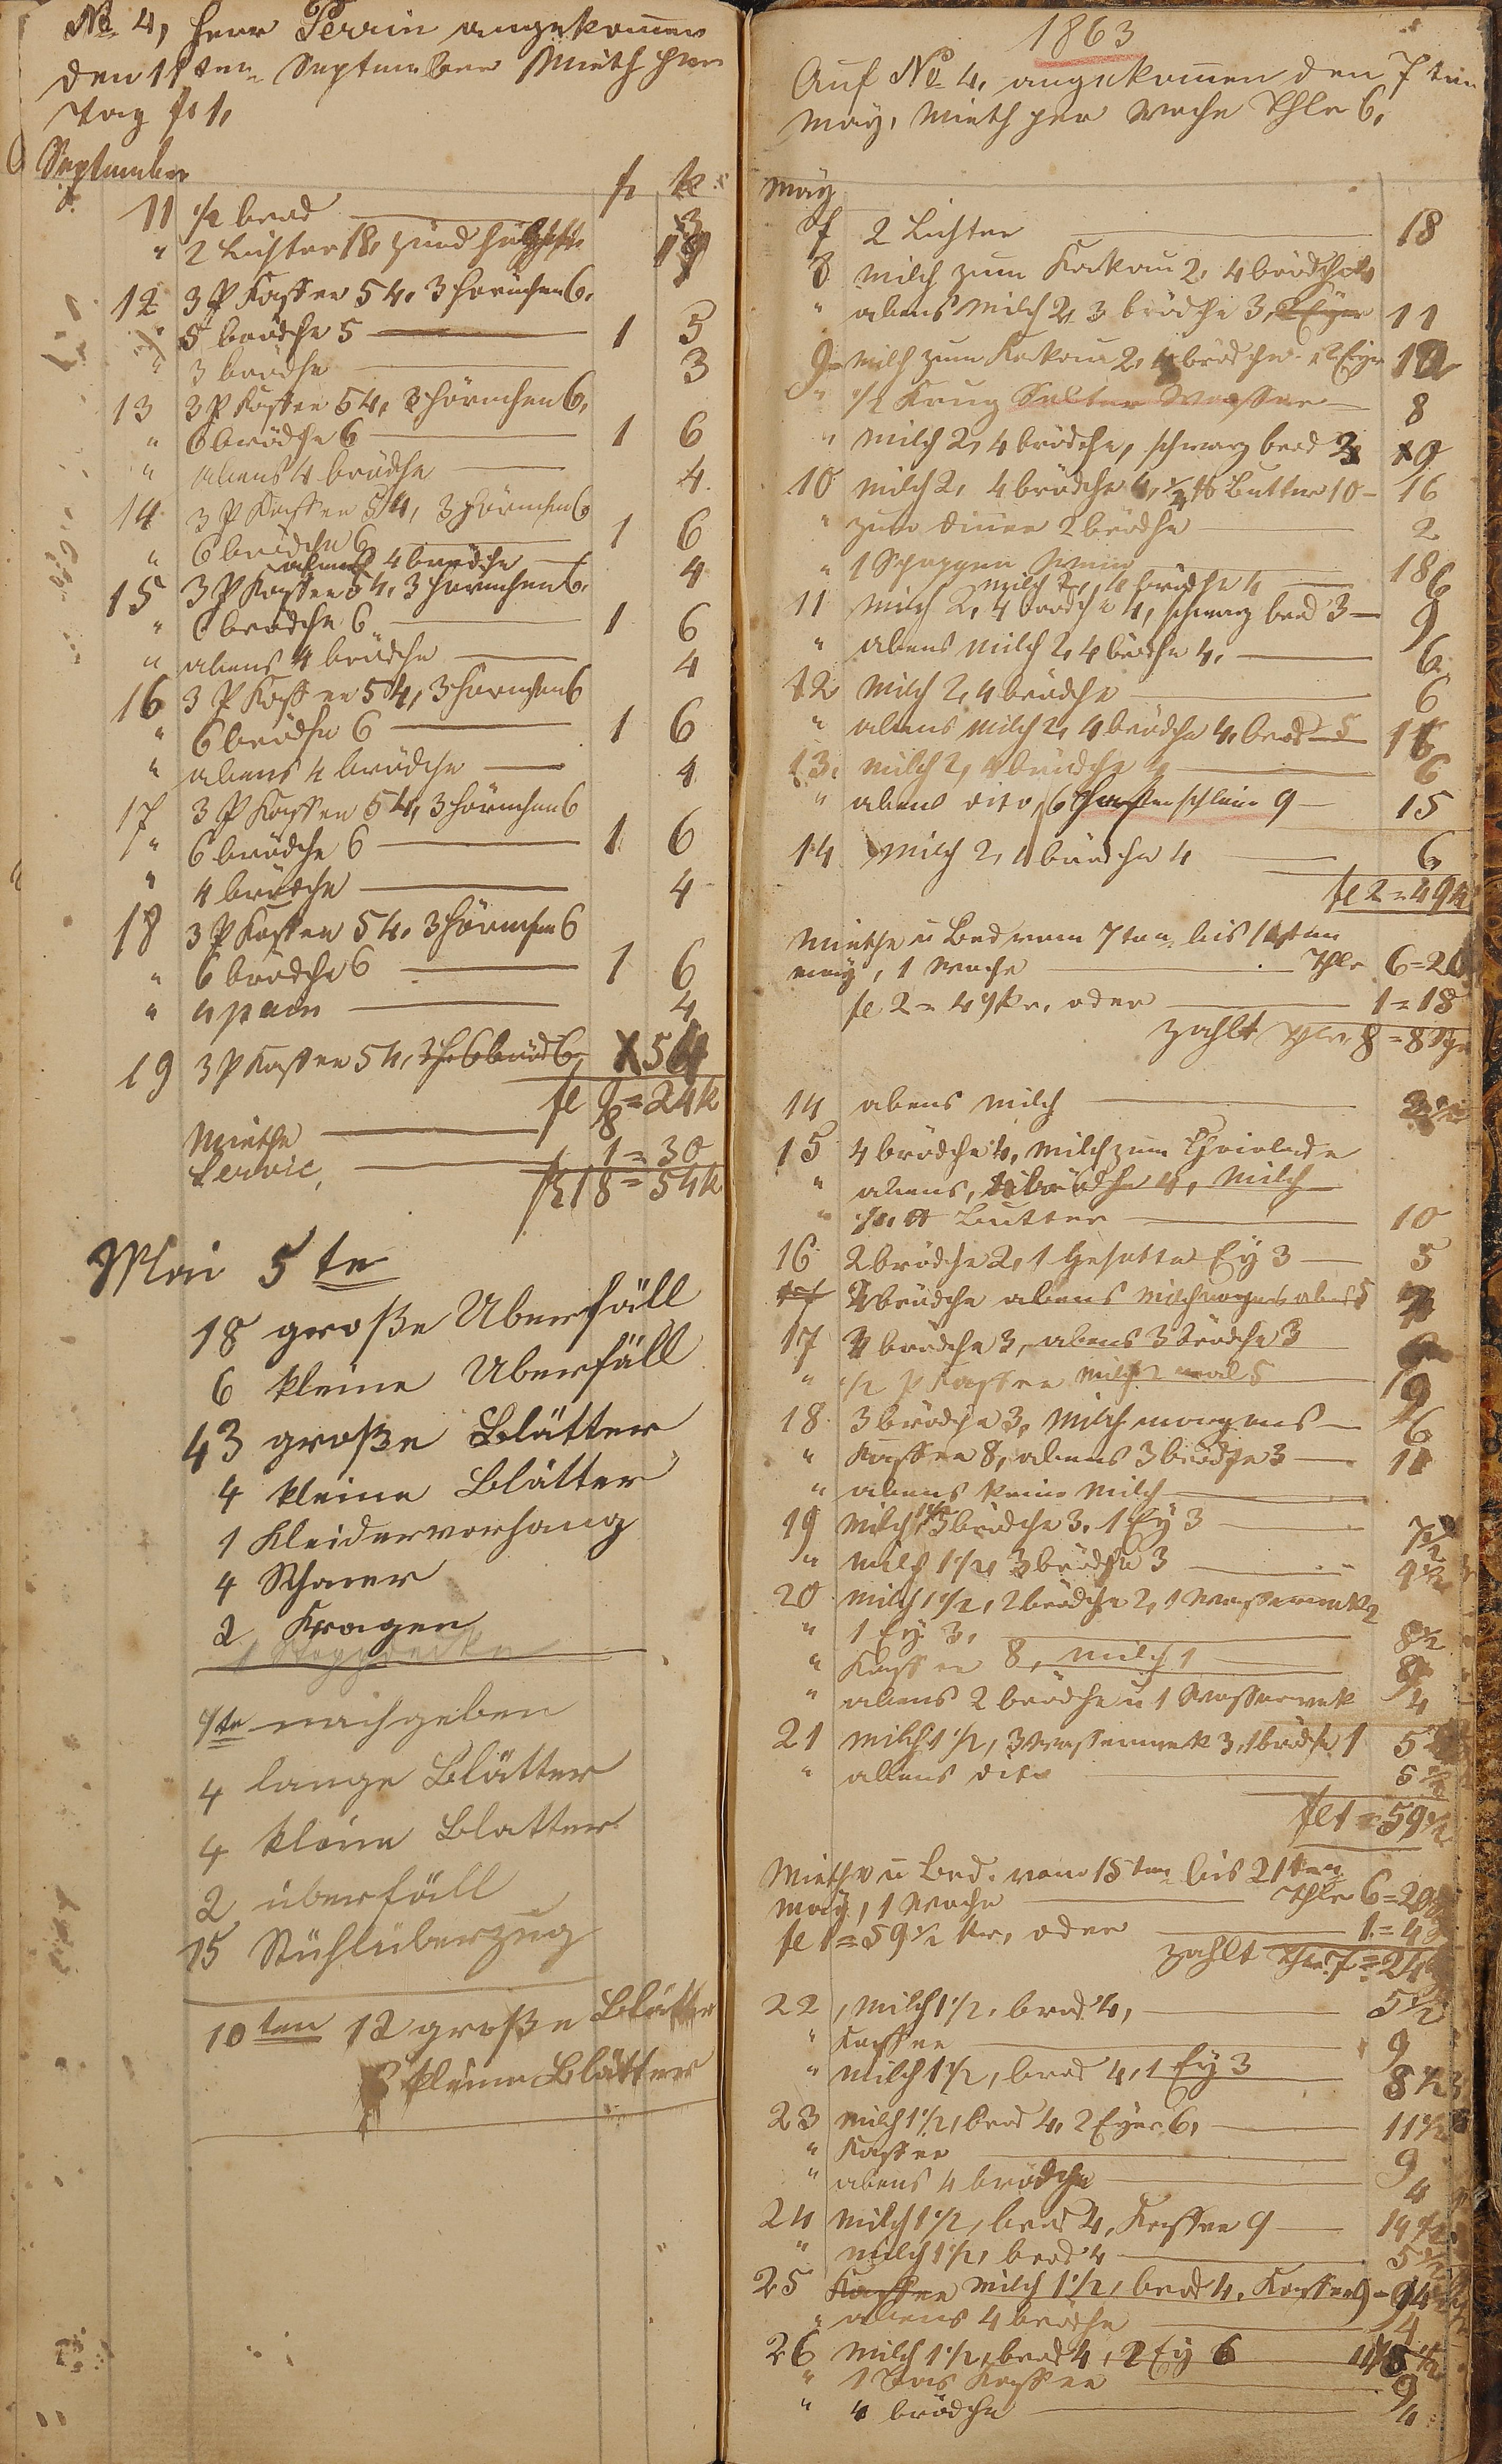 No 4, Herr Perrin angekomen
den 11ten September Mieth per
Tag fr 1,
September
fr k
11 1/2 brod 3
" 2 Lichter 18, zünd
12 3 P Kaffee 54, 3 hörnchen 6,
" 5 brödche 5 1 5
" 3 brödche 3
13 3 P Kaffee 54, 3 hörnchen 6,
" 6 brödche 6 1 6
" abens 4 brödche 4
14 3 P Kaffee 54, 3 hörnchen 6
" 6 brödche 6 1 6
abens 4 brödche 4
15 3 P Kaffee 54, 3 hörnchen 6,
" 6 brödche 6 1 6
" abens 4 brödche 4
16 3 P Kaffee 54, 3 hörnchen 6
" 6 brödche 6 1 6
" abens 4 brödche 4
17 3 P Kaffee 54, 3 hörnchen 6
" 6 brödche 6 1 6
" 4 brödche 4
18 3 P Kaffee 54, 3 hörnchen 6
" 6 brödche 6 1 6
" 4 pain 4
19 3 P Kaffee 54, 54
fl = 24 k
Miethe 8
Servic, 1 = 30
fl 18 = 54 k
Mai 5te
18 große Überfäll
6 kleine Überfäll
43 große Blätter
4 kleine Blätter
1 Kleidervorhang
4 Schaner
2 Kragen
1 Steppdecke
7te nachgeben
4 lange Blätter
4 kleine Blatter
2 überfäll
15 Stühlüberzug
10ten 12 große Blätter
8 kleine Blätter
1863
Auf No 4, angekomen den 7ten
may, Mieth per Woche Thlr 6,
may
7 2 Lichter 18
8 Milch zum Kackau 2, 4 brödche
" abens Milch 2, 3 brödche 3, 2 Eyer 11
9 Milch zum Kackau 2, 4 brödche 2 Eyer
" 1/2 Krug Selter Wasser 8
" Milch 2, 4 brödche, schwarz brod 3 9
10 Milch 2, 4 brödche 4, 1/2 ℔ Butter 10 16
" zum diner 2 brödche 2
" 1 Schoppen Wein 18
Milch 2, 4 brödche 4 6
11 Milch 2, 4 brödche 4, schwarz brod 3 9
" abens Milch 2, 4 brödche 4, 6
12 Milch 2, 4 brödche 6
" abens Milch 2, 4 brödche 4, brod 5 11
13 Milch 2, 4 brödche 4 6
" abens dito, 6 Haferschleim 9 15
14 Milch 2, 4 brödche 4 6
fl 2 = 49 k
Miethe u Bed vom 7ten bis 14ten
may, 1 Woche Thlr 6 = 20
fl 2 = 49 kr, oder 1 = 18
zahlt Thlr 8 = 8 Sgr
14 abens Milch
15 4 brödche 4, Milch zum Chocolade
" abens, 4 brödche 4, Milch
" 1/2 ℔ Butter 10
16 2 brödche 2, 1 Gesotte Ey 3 5
17 4 brödche abens Milch
17 brödche 3, abens 3 brödche 3
" 1/2 P Kaffee Milch 9
18 3 brödche 3, Milch morgens 6
" Kaffee 8, abens 3 brödche 3 11
" abens keine Milch
19 Milch 1 1/2 3 brödche 3, 1 Ey 3 7 1/2
" Milch 1 1/2, 3 brödche 3 4 1/2
20 Milch 1 1/2, 2 brödche 2, 1 Wasserwek 2
" 1 Ey 3, 8 1/2
" Kaffee 8, Milch 1 9
" abens 2 brödche u 1 Wasserwek 4
21 Milch 1 1/2, 3 Wasserwek 3, 1 brödche 1 5 1/2
" abens dito 5 1/2
fl 1 = 59 1/2
Miethe u Bed. vom 15ten bis 21ten
may, 1 Woche Thlr 6 = 20
fl 1 = 59 1/2 kr, oder 1 = 4
zahlt Thlr 7 = 24
22 Milch 1 1/2, brod 4, 5 1/2
" Kaffee 9
" Milch 1 1/2, brod 4, 1 Ey 3 8 1/2
23 Milch 1 1/2, brod 4, 2 Eyer 6, 11 1/2
" Kaffee 9
" abens 4 brödche 4
24 Milch 1 1/2, brod 4, Kaffee 9 14 1/2
" Milch 1 1/2, brod 4 5 1/2
25 Kaffee Milch 1 1/2, brod 4, Kaffee 9
" abens 4 brödche 4
26 Milch 1 1/2, brod 4, 2 Ey 6 11 1/2
" 1 Tas Kaffee 9
" 4 brödche 4